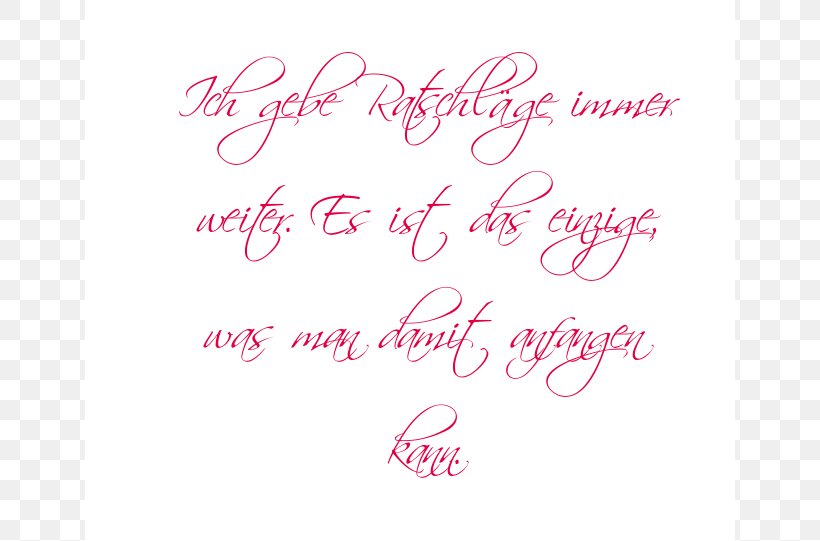 Ich gebe Ratschläge immer
weiter. Es ist das einzige,
was man damit anfangen
kann.